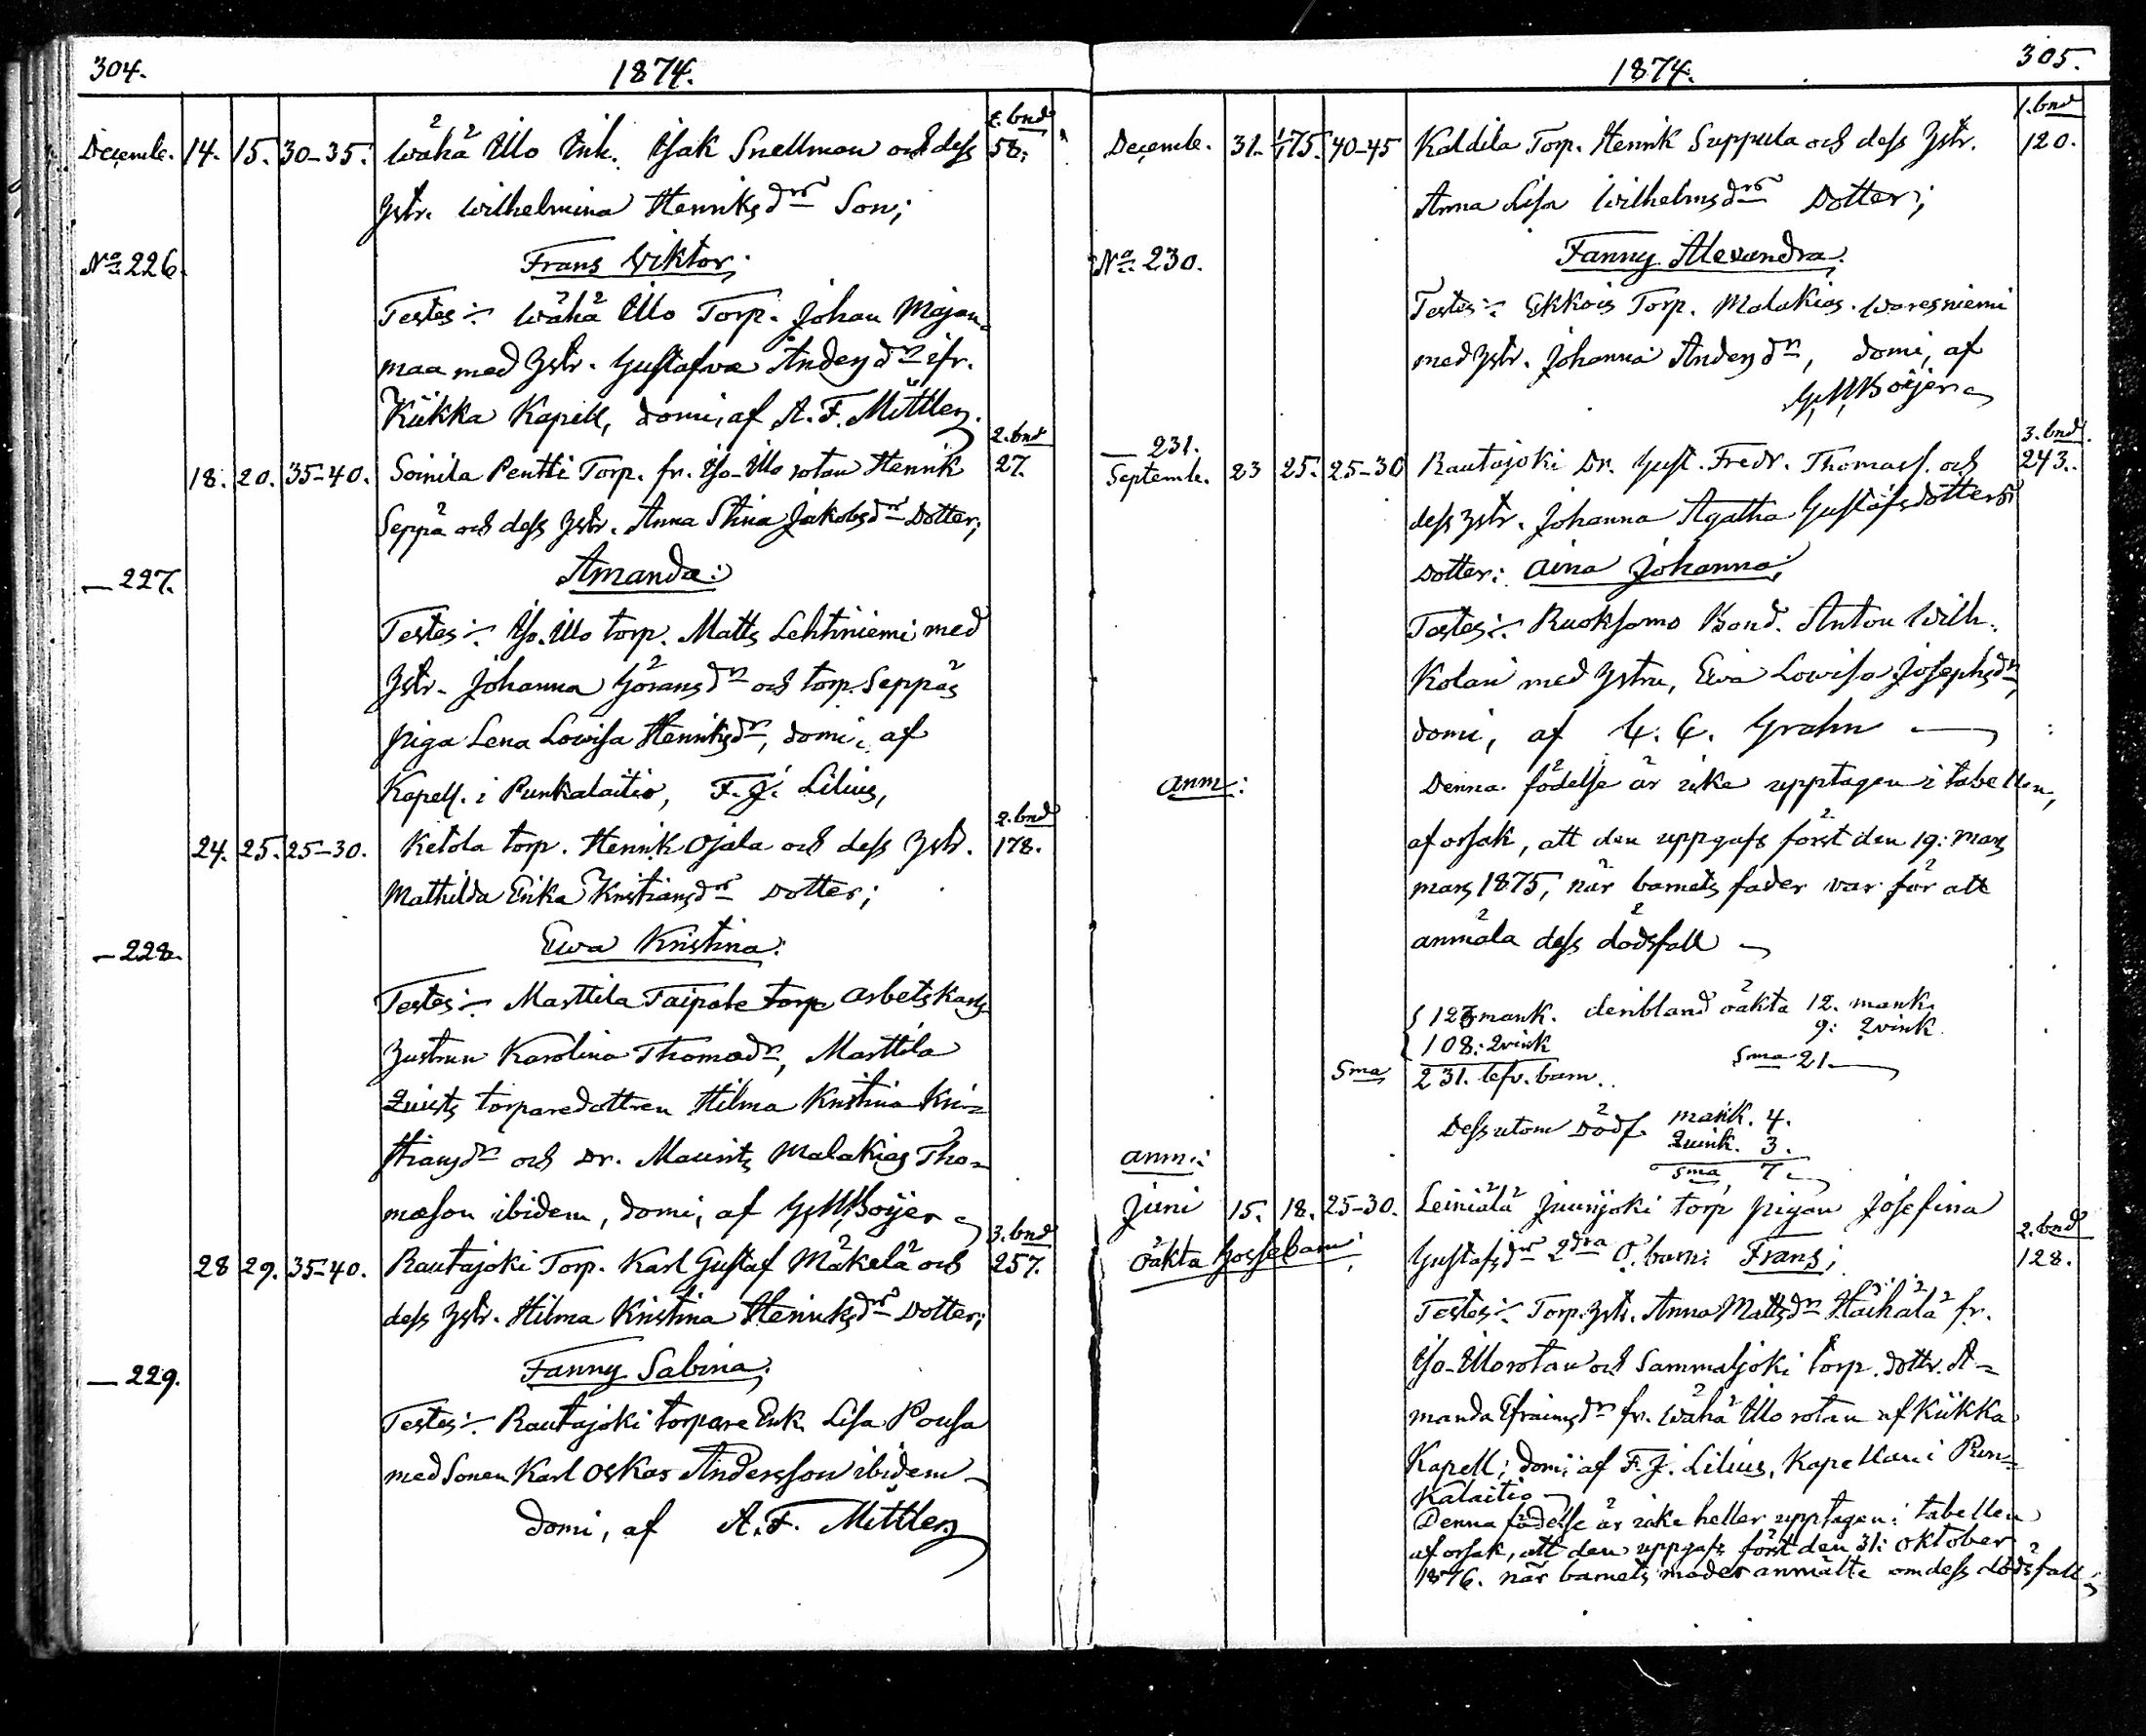 304.
1874.
2. bnd
Decembr. 14. 15. 30-35. Wähä Ullo Enk. Isak Snellman och dess 58.
hstr. Wilhelmina Henriksdrs Son;
No 226. Frans Viktor;
Testes:- Wähä Ullo Torp. Johan Majan-
maa med hstr. Gustafva Andersdr ifr.
Kiikka Kapell, domi, af A. F. Mittler.
2. bnd
18. 20. 35-40. Soinila Pentti Torp. fr. Iso-Ullo rotan Henrik 27.
Seppä och dess hstr. Anna Stina Jakobsdrs Dotter;
— 227. Amanda:
Testes:- Iso-Ullo torp. Matts Lehtiniemi med
hstr. Johanna Göransdr och torp. Seppäs
piga Lena Lowisa Henriksdr, domi, af
Kapell. i Punkalaitio, F. J. Lilius,
2. bnd
24. 25. 25-30. Ketola torp. Henrik Ojala och dess hstr. 178.
Mathilda Erika Kristiansdrs Dotter;
— 228. Ewa Kristina:
Testes:- Marttila Taipale torp arbetskarls
hustrun Karolina Thomadr, Marttila
Qvists torparedottren Hilma Kristina Kri-
stiansdr och Dr. Maurits Malakias Tho-
mason ibidem, domi, af G. M. Boijer
3. bnd
28 29. 35-40. Rautajoki Torp. Karl Gustaf Mäkelä och 257.
dess hstr. Hilma Kristina Henriksdrs Dotter;
— 229. Fanny Sabina;
Testes:- Rautajoki torpare Enk. Lisa Pousa
med sonen Karl Oskar Andersson ibidem
domi, af A. F. Mittler
305.
1874.
1. bnd
Decembr. 31. 1/1 75. 40-45 Kaldila Torp. Henrik Suppula och dess hstr. 120.
Anna Lisa Wilhelmsdrs Dotter;
No 230. Fanny Alexandra.
Testes:- Ekkois Torp. Malakias Waresniemi
med hstr. Johanna Andersdr, domi, af
G. M. Boijer
3. bnd
— 231.
Septembr. 23 25. 25-30 Rautajoki Dr. Gust. Fredr. Thomass. och 243.
dess hstr. Johanna Agatha Gustafsdotters
Dotter: Aina Johanna;
Testes:- Ruoksamo Bond. Anton Wilh.
Kolari med hstru, Ewa Lowisa Josephsdr,
domi, af C. C. Grahn —
Anm: Denna födelse är icke upptagen i tabellen,
af orsak, att den uppgafs först den 19: Mars
mars 1875, när barnets fader var för att
anmäla dess dödsfall
123 mank. deribland oäkta 12. mank.
108. Qvink 9: Qvink.
Sma 231. lefv. barn. Sma 21.
Dessutom Dödf. mank. 4.
Quink. 3.
Sma 7.
Anm:
Juni 15. 18. 25-30. Leiniälä Juunjoki torp pigan Josefina
2. bnd
Oäkta Gossebarn; Gustafsdrs 2dra O. barn: Frans; 128.
Testes:- Torp. hstr. Anna Mattsdr Häihälä fr.
Iso-Ullo rotan och Sammaljoki torp. dottr. A-
manda Efraimsdr fr. Wähä Ullo rotan af Kiikka
Kapell; domi af F. J. Lilius, Kapellan i Pun-
kalaitio
Denna födelse är icke heller upptagen i tabellen
af orsak, att den uppgafs först den 31: Oktober
1876. när barnets moder anmälte om dess dödsfall